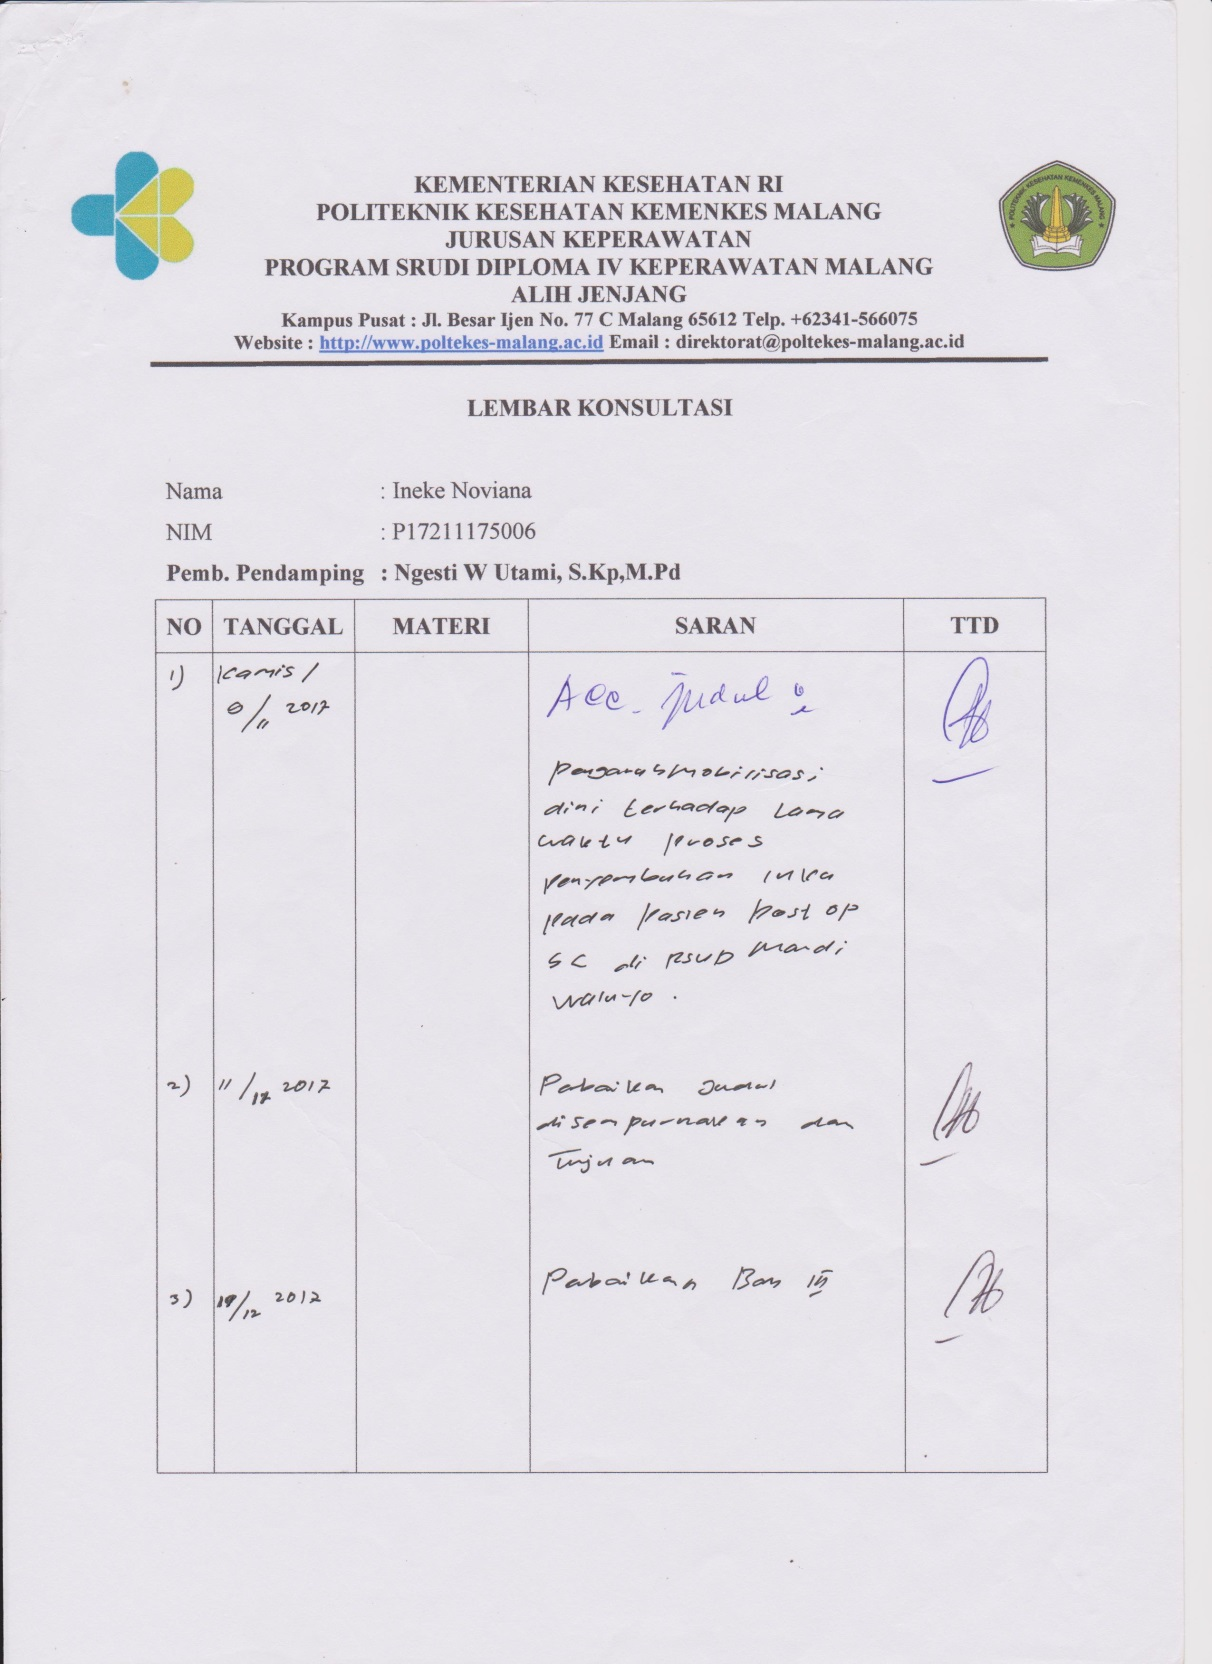 KEMENTERIAN KESEHATAN RI
POLITEKNIK KESEHATAN KEMENKES MALANG
JURUSAN KEPERAWATAN
PROGRAM SRUDI DIPLOMA IV KEPERAWATAN MALANG
ALIH JENJANG
Kampus Pusat : Jl. Besar Ijen No. 77 C Malang 65612 Telp. +62341-566075
Website : http://www.poltekes-malang.ac.id Email : direktorat@poltekes-malang.ac.id
POLITEKNIK KESEHATAN KEMENKES MALANG
LEMBAR KONSULTASI
Nama : Ineke Noviana
NIM : P17211175006
Pemb. Pendamping : Ngesti W Utami, S.Kp,M.Pd
NO TANGGAL MATERI SARAN TTD
1) Kamis / Acc. judul :
/11 2017
Pengaruh mobilisasi
dini terhadap Lama
waktu proses
penyembuhan luka
pada pasien post op
SC di RSUD Mardi
Waluyo .
2) 11/12 2017 Pabaikan Judul
disempurnakan dan
Tujuan
3) 19/12 2017 Pabaikan Bab III